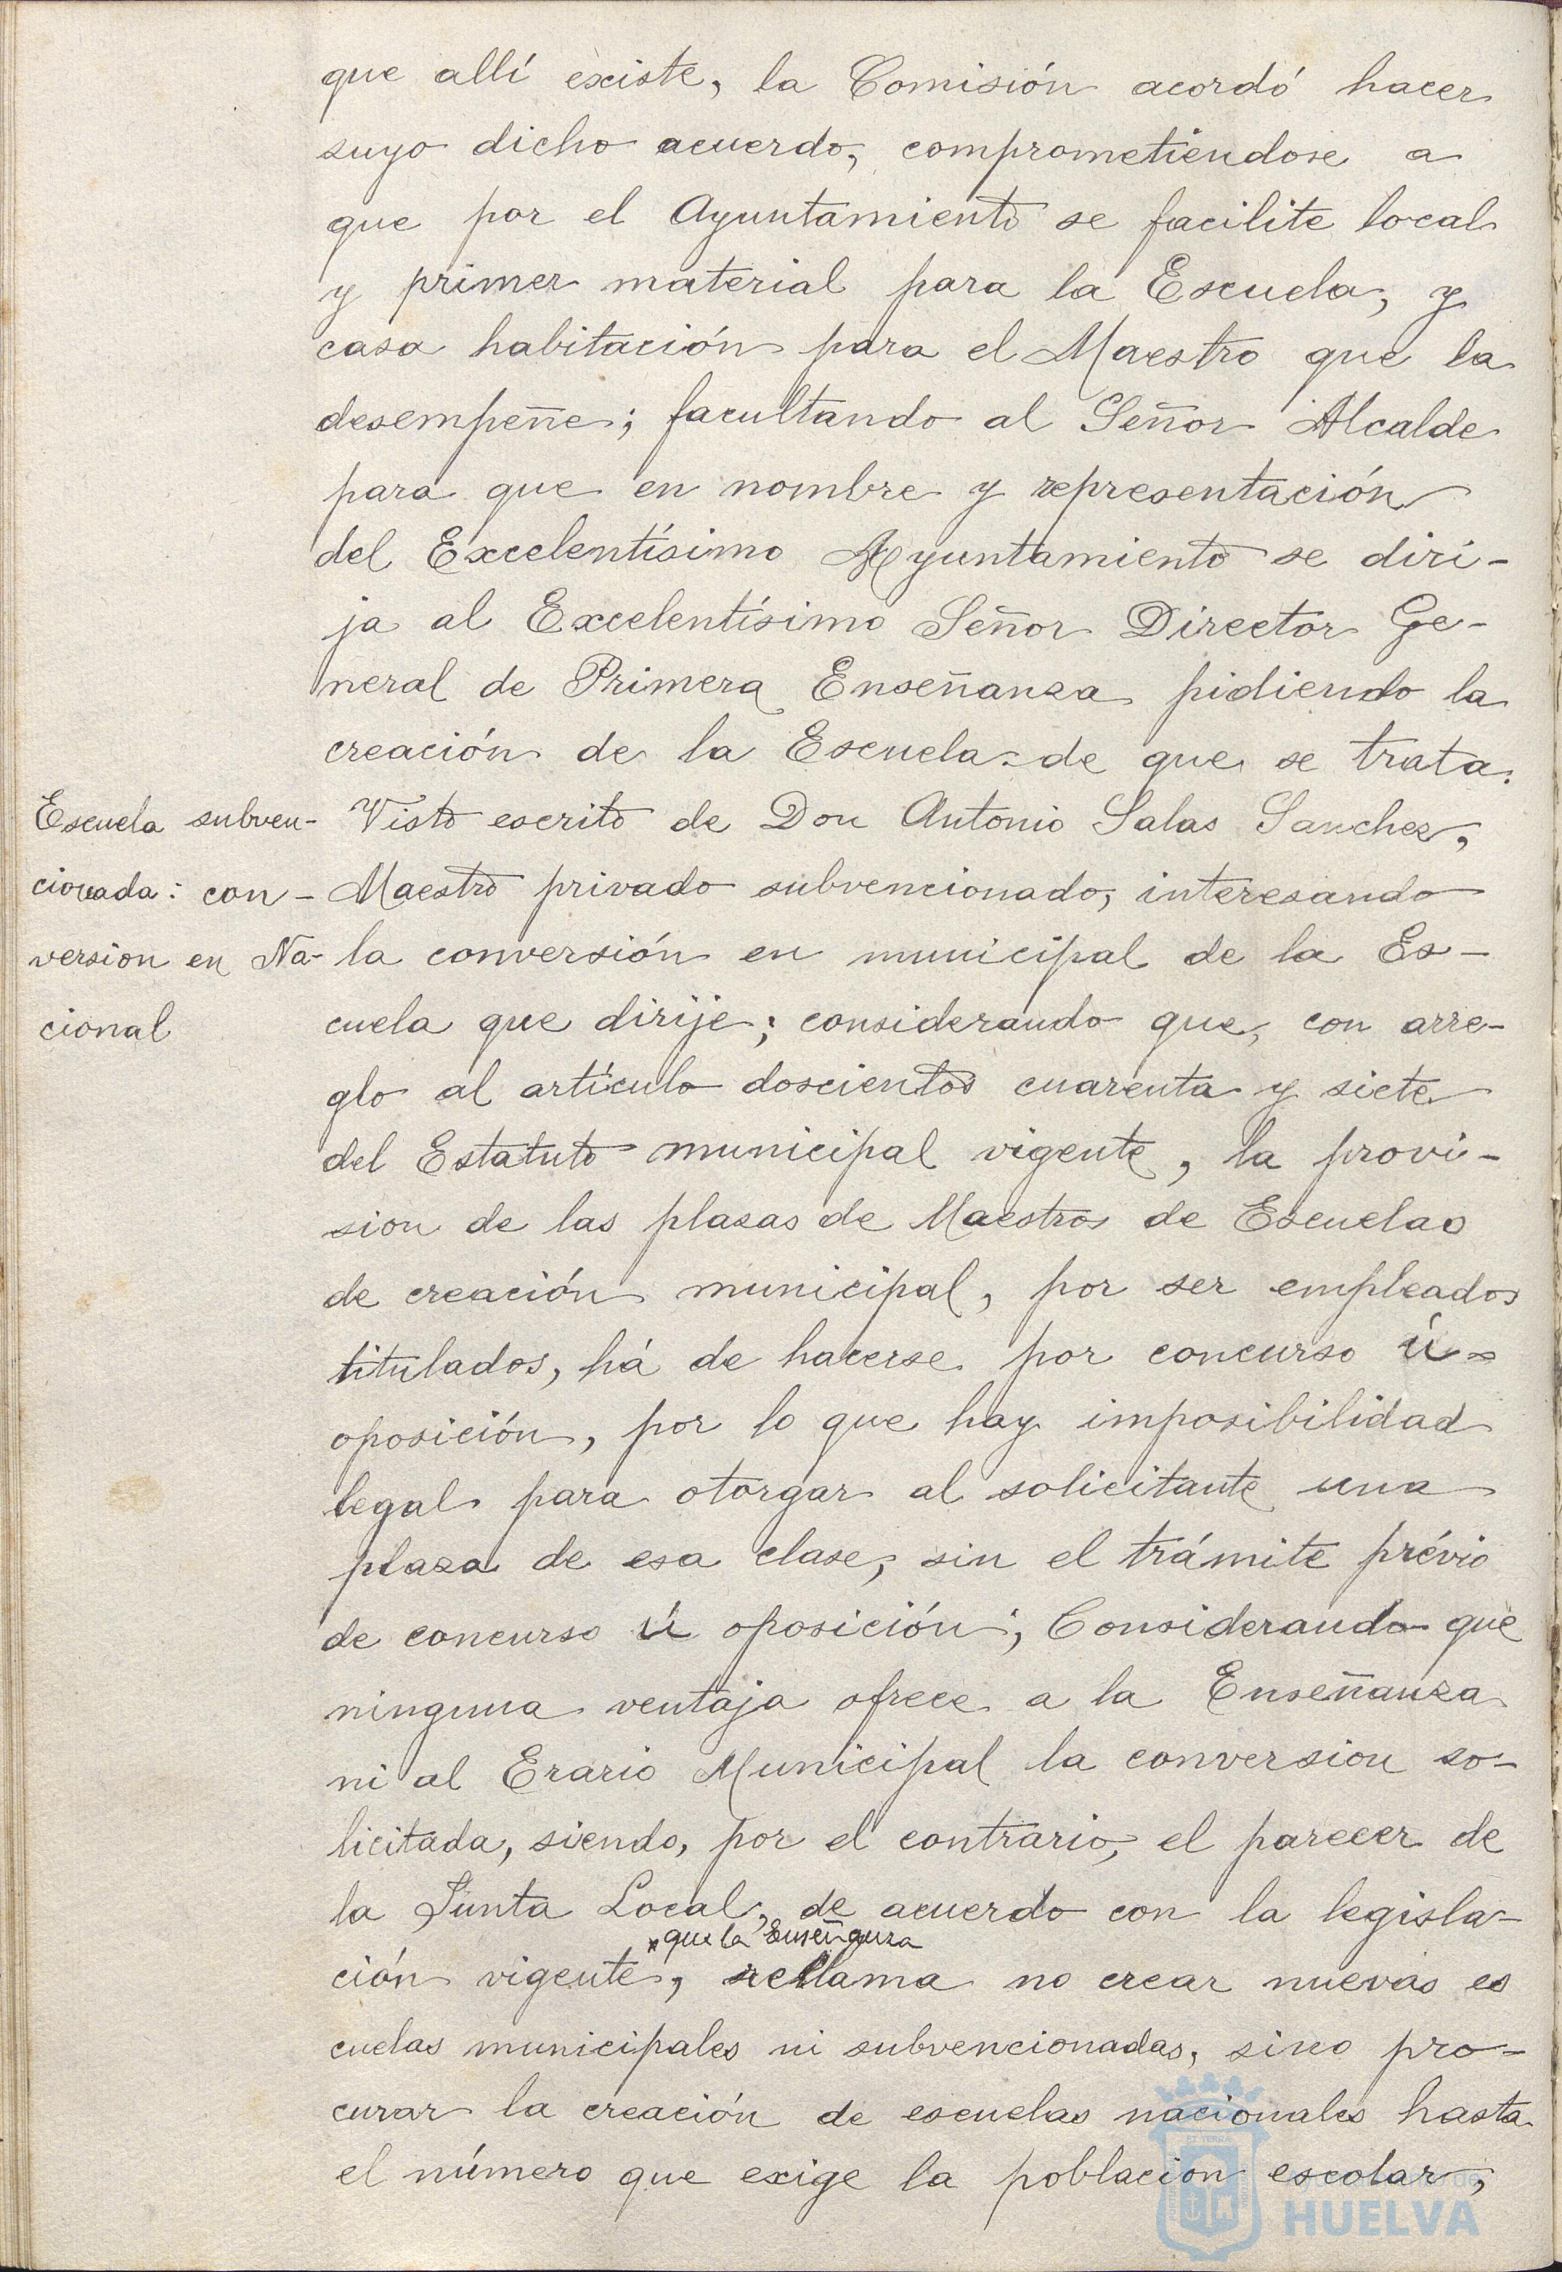 que allí existe, la Comisión acordó hacer
suyo dicho acuerdo, comprometiendose a
que por el Ayuntamiento se facilite local
y primer material para la Escuela, y
casa habitación para el Maestro que la
desempeñe; facultando al Señor Alcalde
para que en nombre y representación
del Excelentísimo Ayuntamiento se diri-
ja al Excelentísimo Señor Director Ge-
neral de Primera Enseñanza pidiendo la
creación de la Escuela de que se trata.
Escuela subven-
cionada: con-
version en Na-
cional
Visto escrito de Don Antonio Salas Sanchez,
Maestro privado subvencionado, interesando
la conversión en municipal de la Es-
cuela que dirije; considerando que, con arre-
glo al artículo doscientos cuarenta y siete
del Estatuto municipal vigente, la provi-
sion de las plazas de Maestros de Escuelas
de creación municipal, por ser empleados
titulados, há de hacerse por concurso ú-
oposición, por lo que hay imposibilidad
legal para otorgar al solicitante una
plaza de esa clase, sin el trámite prévio
de concurso ú oposición; Considerando que
ninguna ventaja ofrece a la Enseñanza
ni al Erario Municipal la conversion so-
licitada, siendo, por el contrario, el parecer de
la Junta Local, de acuerdo con la legisla-
que la Enseñanza
ción vigente, reclama no crear nuevas es
cuelas municipales ni subvencionadas, sino pro-
curar la creación de escuelas nacionales hasta
el número que exige la poblacion escolar,
HUELVA